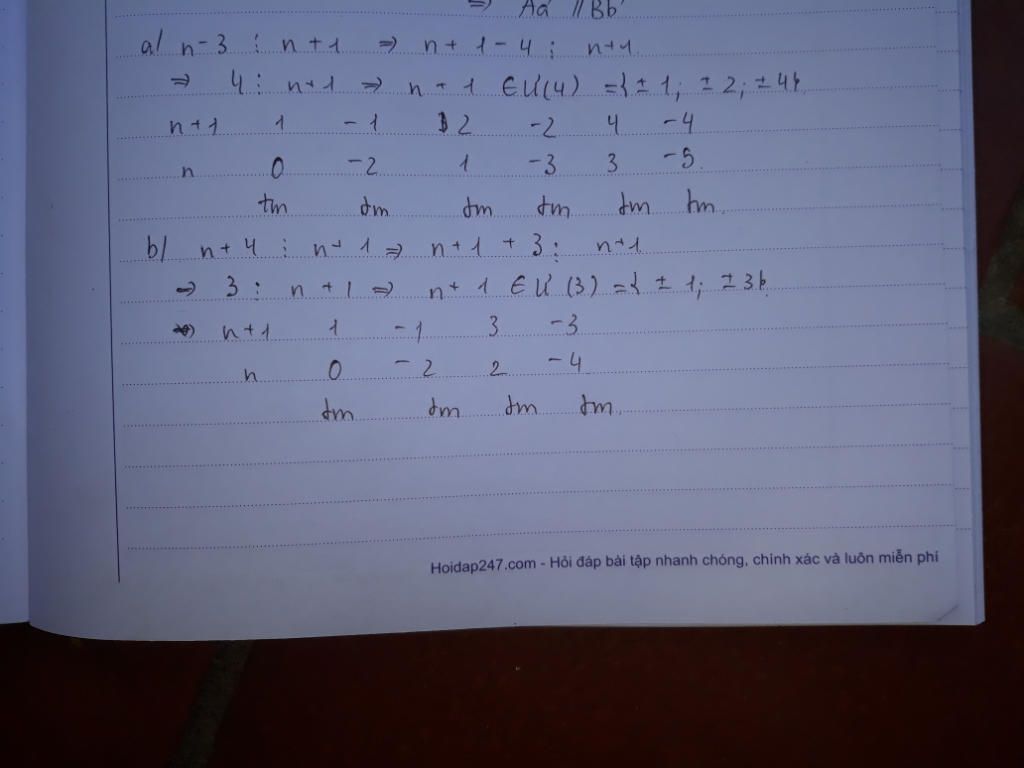 ⇒ Aa' // Bb'
a/ n-3 ⋮ n+1 ⇒ n+1-4 ⋮ n+1
⇒ 4 ⋮ n+1 ⇒ n+1 ∈ Ư(4) = {±1; ±2; ±4}
n+1 1 -1 2 -2 4 -4
n 0 -2 1 -3 3 -5
tm tm tm tm tm tm
b/ n+4 ⋮ n+1 ⇒ n+1+3 ⋮ n+1
⇒ 3 ⋮ n+1 ⇒ n+1 ∈ Ư(3) = {±1; ±3}
n+1 1 -1 3 -3
n 0 -2 2 -4
tm tm tm tm
Hoidap247.com - Hỏi đáp bài tập nhanh chóng, chính xác và luôn miễn phí